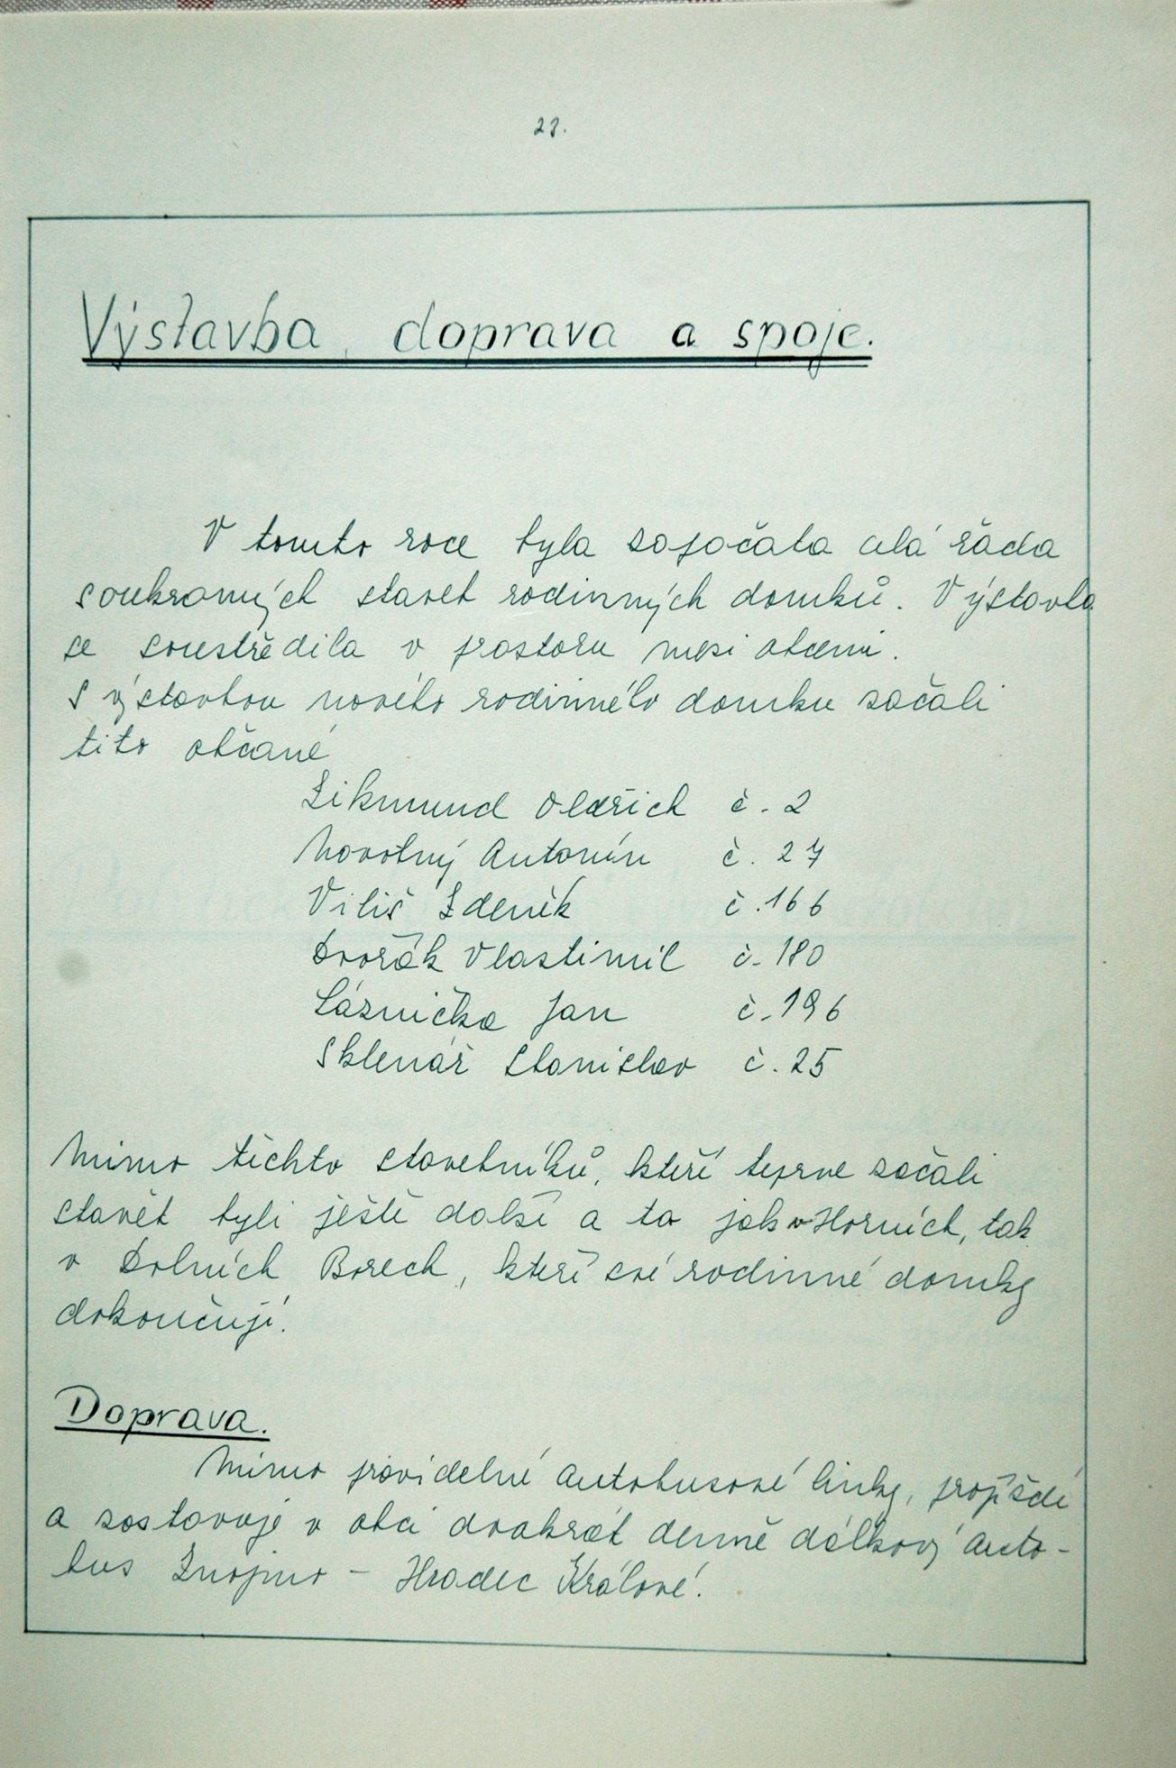 27.
Výstavba, doprava a spoje.
V tomto roce byla započata celá řada
soukromých staveb rodinných domků. Výstavba
se soustředila v prostoru mezi obcemi.
S výstavbou nového rodinného domku začali
tito občané
Zikmund Oldřich č. 2
Novotný Antonín č. 27
Viliš Zdeněk č. 166
Dvořák Vlastimil č. 180
Láznička Jan č. 196
Sklenář Stanislav č. 25
Mimo těchto stavebníků, kteří teprve začali
stavět byli ještě další a to jak v Horních, tak
v Dolních Borech, kteří své rodinné domky
dokončují.
Doprava.
Mimo pravidelné autobusové linky, projíždí
a zastavuje v obci dvakrát denně dálkový auto-
bus Znojmo - Hradec Králové.